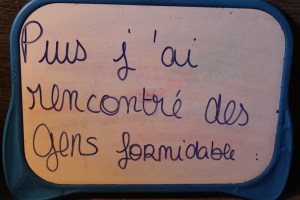 Puis j'ai
rencontré des
gens formidable :